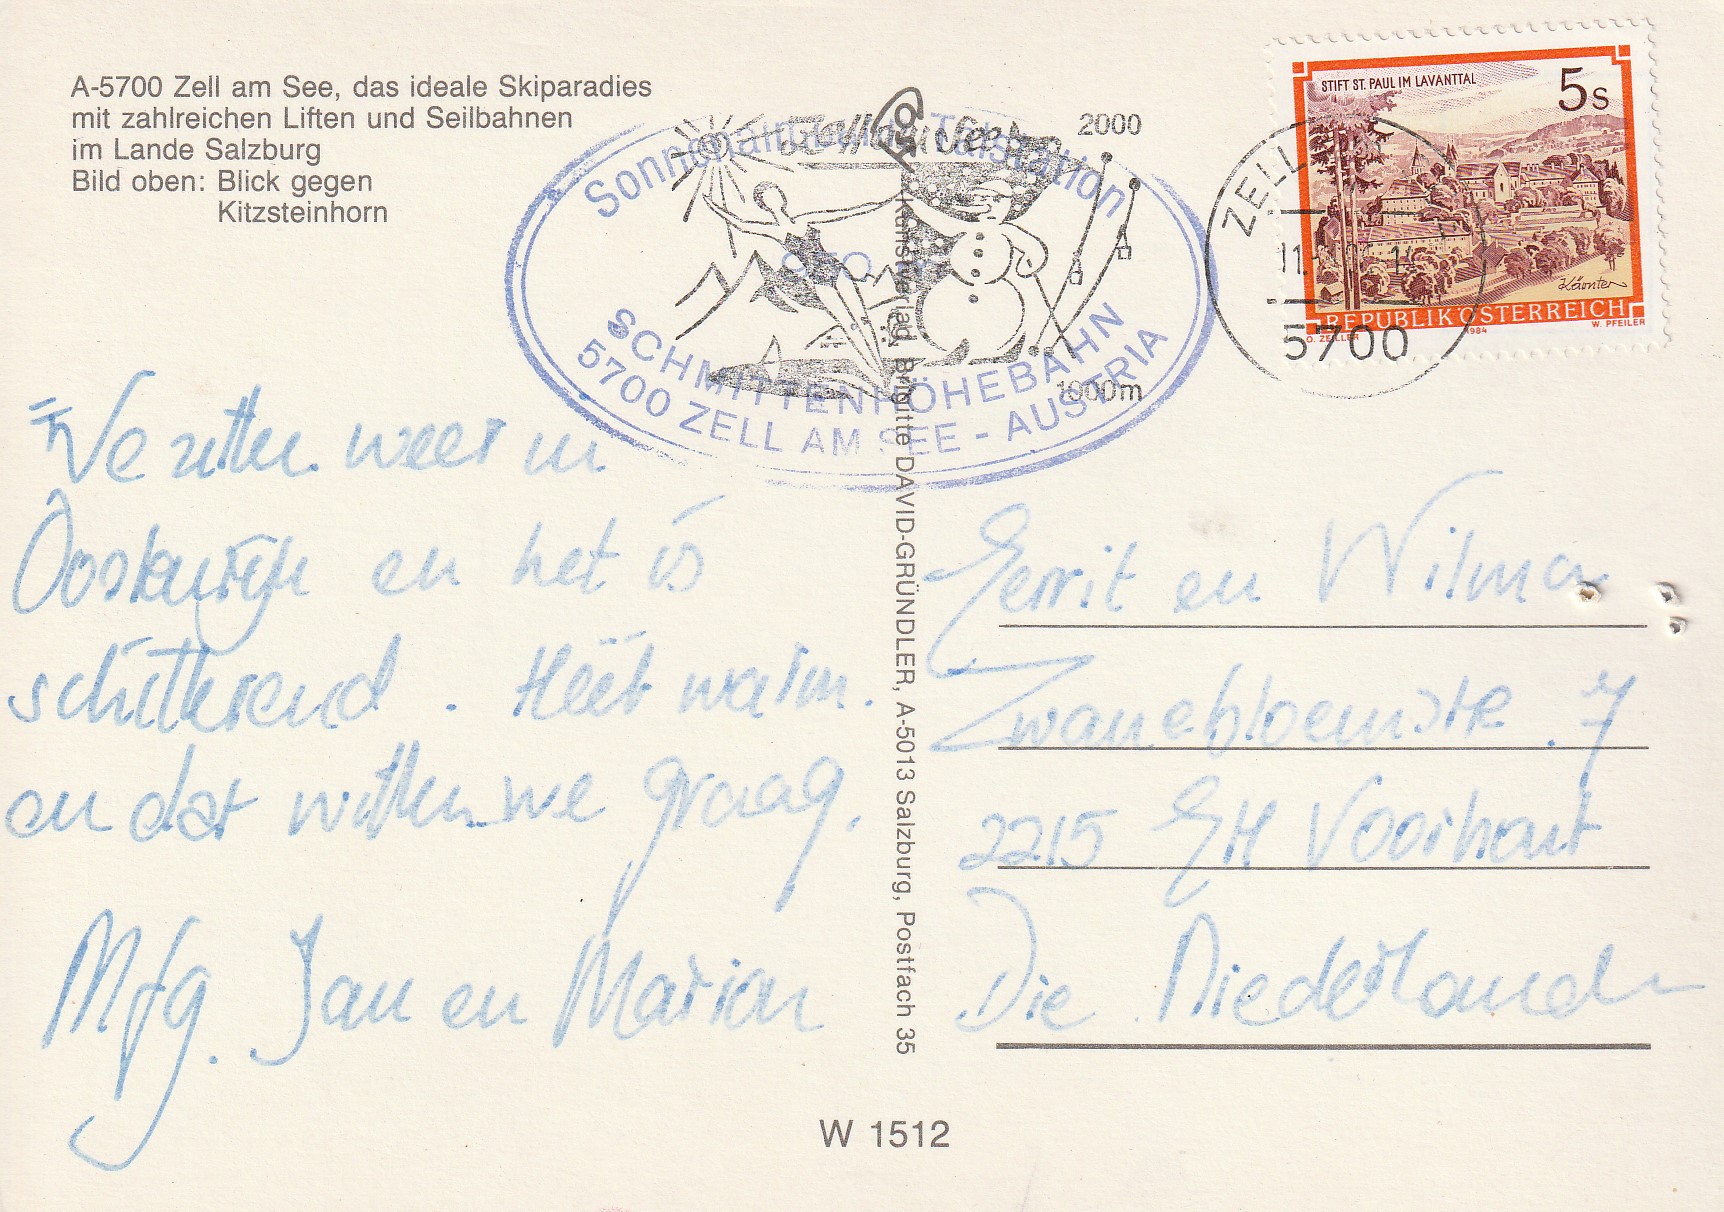 A-5700 Zell am See, das ideale Skiparadies
mit zahlreichen Liften und Seilbahnen
im Lande Salzburg
Bild oben: Blick gegen
Kitzsteinhorn
Talstation
SCHMITTENHÖHEBAHN
5700 ZELL AM SEE - AUSTRIA
Zell am See
2000
1000m
ZELL
5700
STIFT ST. PAUL IM LAVANTTAL
5s
Kärnten
REPUBLIK ÖSTERREICH
O. ZEILLER 1984 W. PFEILER
We zitten weer in
Oostenrijk en het is
schitterend. Heet warm.
en dat willen we graag.
Mfg. Jan en Marian
Kunstverlag Brigitte DAVID-GRÜNDLER, A-5013 Salzburg, Postfach 35
Gerrit en Wilma
Zwanebloemstr. 7
2215 GH Voorhout
Die Niederlanden
W 1512